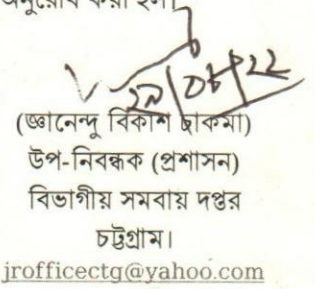 অনুরোধ করা হল।
২৯/০৮/২২
(জ্ঞানেন্দু বিকাশ চাকমা)
উপ-নিবন্ধক (প্রশাসন)
বিভাগীয় সমবায় দপ্তর
চট্টগ্রাম।
jrofficectg@yahoo.com